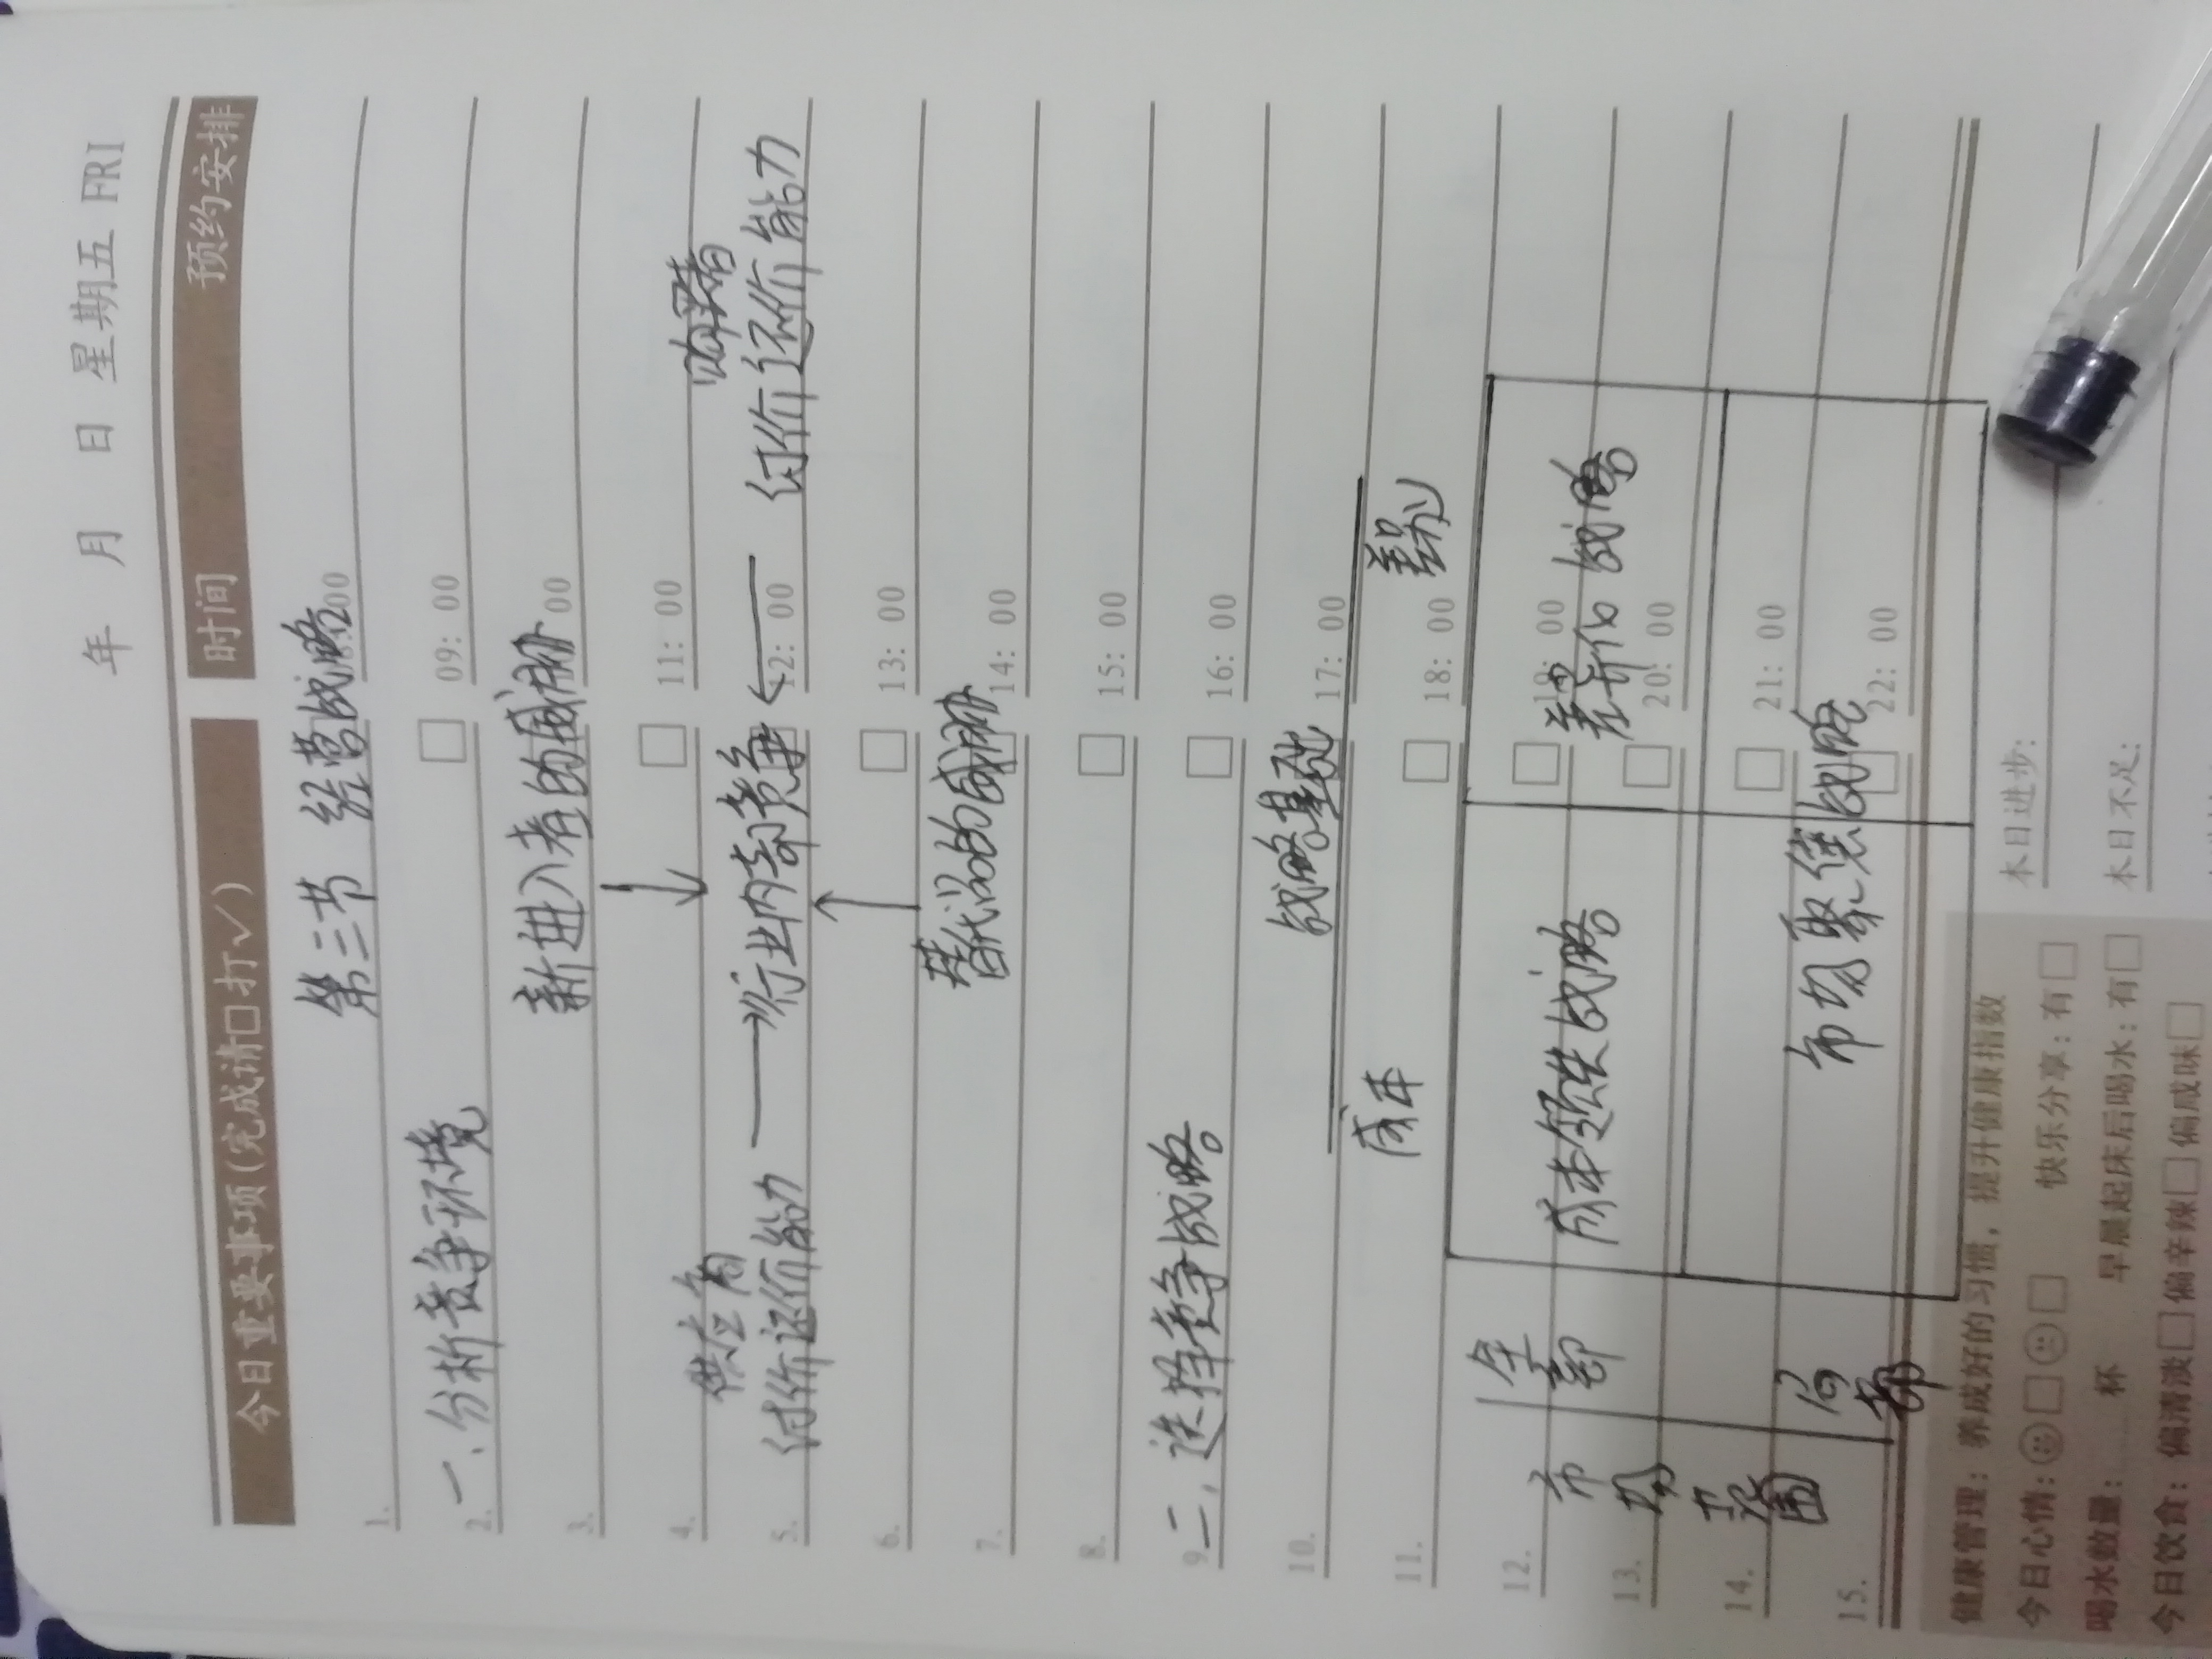 年 月 日 星期五 FRI
今日重要事项(完成请□打√) 时间 预约安排
第三节 经营战略
1. 00
2. 一、分析竞争环境 09: 00
新进入者的威胁
3. 00
供应商 购买者
4. 11: 00
讨价还价能力 → 行业内竞争 ← 讨价还价能力
5. 12: 00
6. 13: 00
替代品的威胁
7. 14: 00
8. 15: 00
9. 二、选择竞争战略 16: 00
战略基础
10. 17: 00
成本 差别
11. 18: 00
全部
成本领先战略 差异化战略
12. 00
市场范围
13. 20: 00
14. 21: 00
局部
市场聚焦战略
15. 22: 00
健康管理: 养成好的习惯, 提升健康指数
今日心情: 快乐分享: 有□
喝水数量: 杯 早晨起床后喝水: 有□
今日饮食: 偏清淡□偏辛辣□偏咸味□
本日进步:
本日不足: